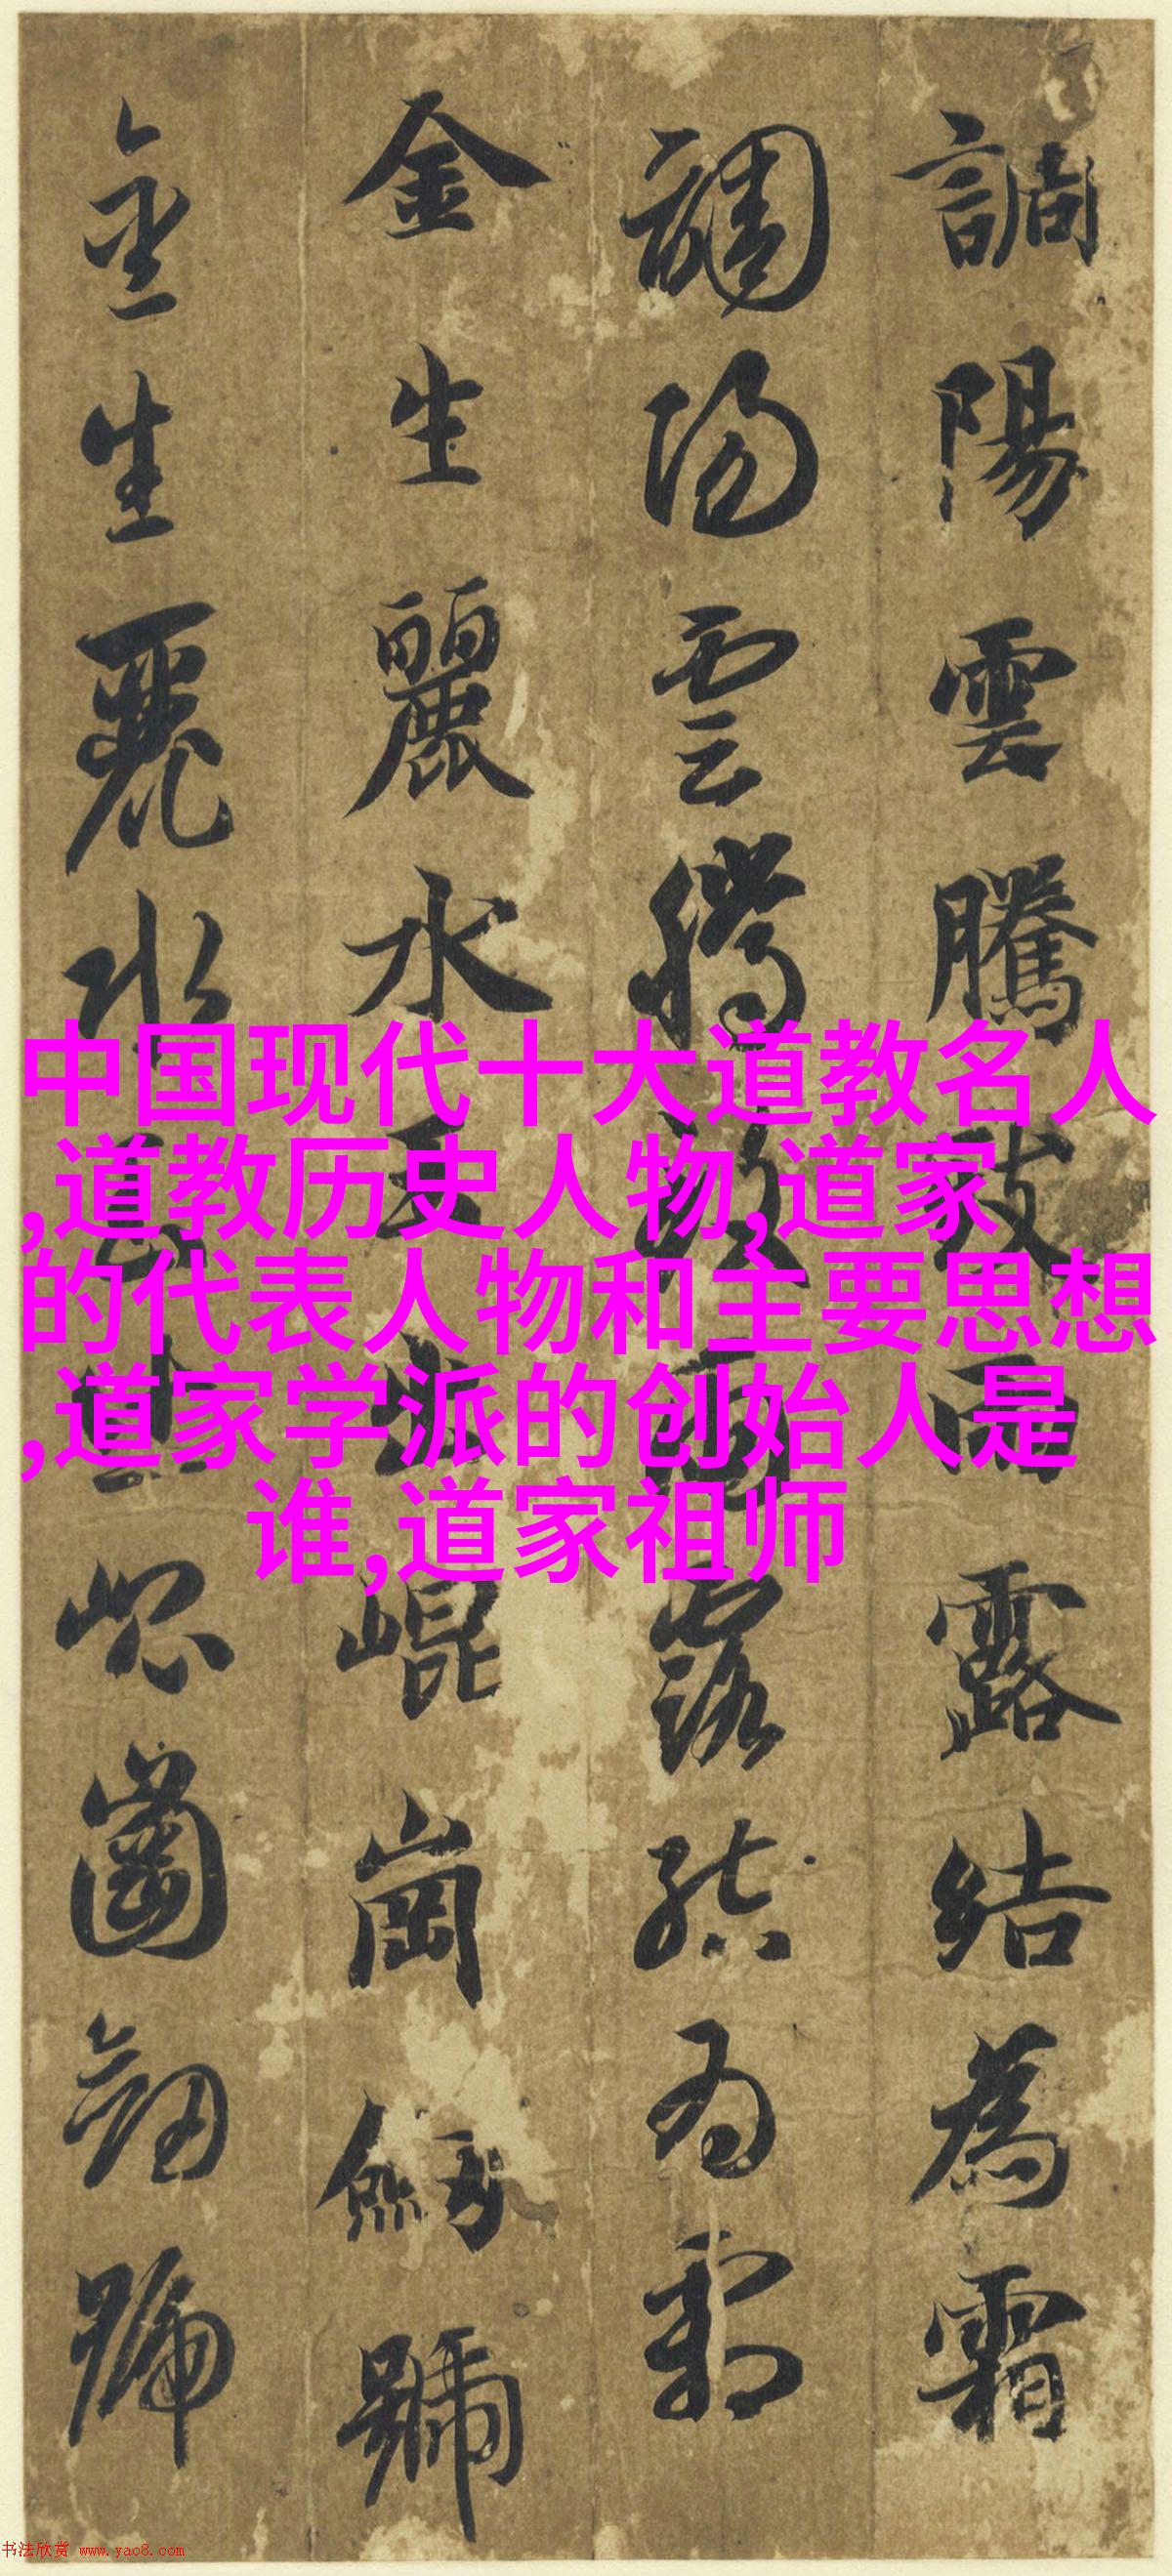 調陽雲騰致雨露結為霜
調陽雲騰致雨露結為霜
金生麗水玉出崐崗劒號
金生麗水玉出崐崗劒號
中国现代十大道教名人
,道教历史人物,道家
的代表人物和主要思想
,道家学派的创始人是
谁,道家祖师
书法欣赏 www.yac8.com